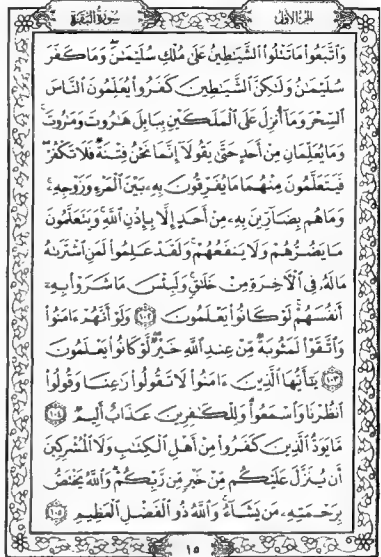 الجزء الأول
سورة البقرة
وَاتَّبَعُوا مَا تَتْلُوا الشَّيَاطِينُ عَلَىٰ مُلْكِ سُلَيْمَٰنَ وَمَا كَفَرَ
سُلَيْمَٰنُ وَلَٰكِنَّ الشَّيَٰطِينَ كَفَرُوا يُعَلِّمُونَ النَّاسَ
السِّحْرَ وَمَا أُنزِلَ عَلَى الْمَلَكَيْنِ بِبَابِلَ هَٰرُوتَ وَمَٰرُوتَ
وَمَا يُعَلِّمَانِ مِنْ أَحَدٍ حَتَّىٰ يَقُولَا إِنَّمَا نَحْنُ فِتْنَةٌ فَلَا تَكْفُرْ
فَيَتَعَلَّمُونَ مِنْهُمَا مَا يُفَرِّقُونَ بِهِ بَيْنَ الْمَرْءِ وَزَوْجِهِ
وَمَا هُم بِضَارِّينَ بِهِ مِنْ أَحَدٍ إِلَّا بِإِذْنِ اللَّهِ وَيَتَعَلَّمُونَ
مَا يَضُرُّهُمْ وَلَا يَنفَعُهُمْ وَلَقَدْ عَلِمُوا لَمَنِ اشْتَرَىٰهُ
مَا لَهُ فِي الْآخِرَةِ مِنْ خَلَٰقٍ وَلَبِئْسَ مَا شَرَوْا بِهِ
أَنفُسَهُمْ لَوْ كَانُوا يَعْلَمُونَ ١٠٢ وَلَوْ أَنَّهُمْ ءَامَنُوا
وَاتَّقَوْا لَمَثُوبَةٌ مِّنْ عِندِ اللَّهِ خَيْرٌ لَّوْ كَانُوا يَعْلَمُونَ
١٠٣ يَٰأَيُّهَا الَّذِينَ ءَامَنُوا لَا تَقُولُوا رَٰعِنَا وَقُولُوا
انظُرْنَا وَاسْمَعُوا وَلِلْكَٰفِرِينَ عَذَابٌ أَلِيمٌ ١٠٤
مَا يَوَدُّ الَّذِينَ كَفَرُوا مِنْ أَهْلِ الْكِتَٰبِ وَلَا الْمُشْرِكِينَ
أَن يُنَزَّلَ عَلَيْكُم مِّنْ خَيْرٍ مِّن رَّبِّكُمْ وَاللَّهُ يَخْتَصُّ
بِرَحْمَتِهِ مَن يَشَاءُ وَاللَّهُ ذُو الْفَضْلِ الْعَظِيمِ ١٠٥
١٥